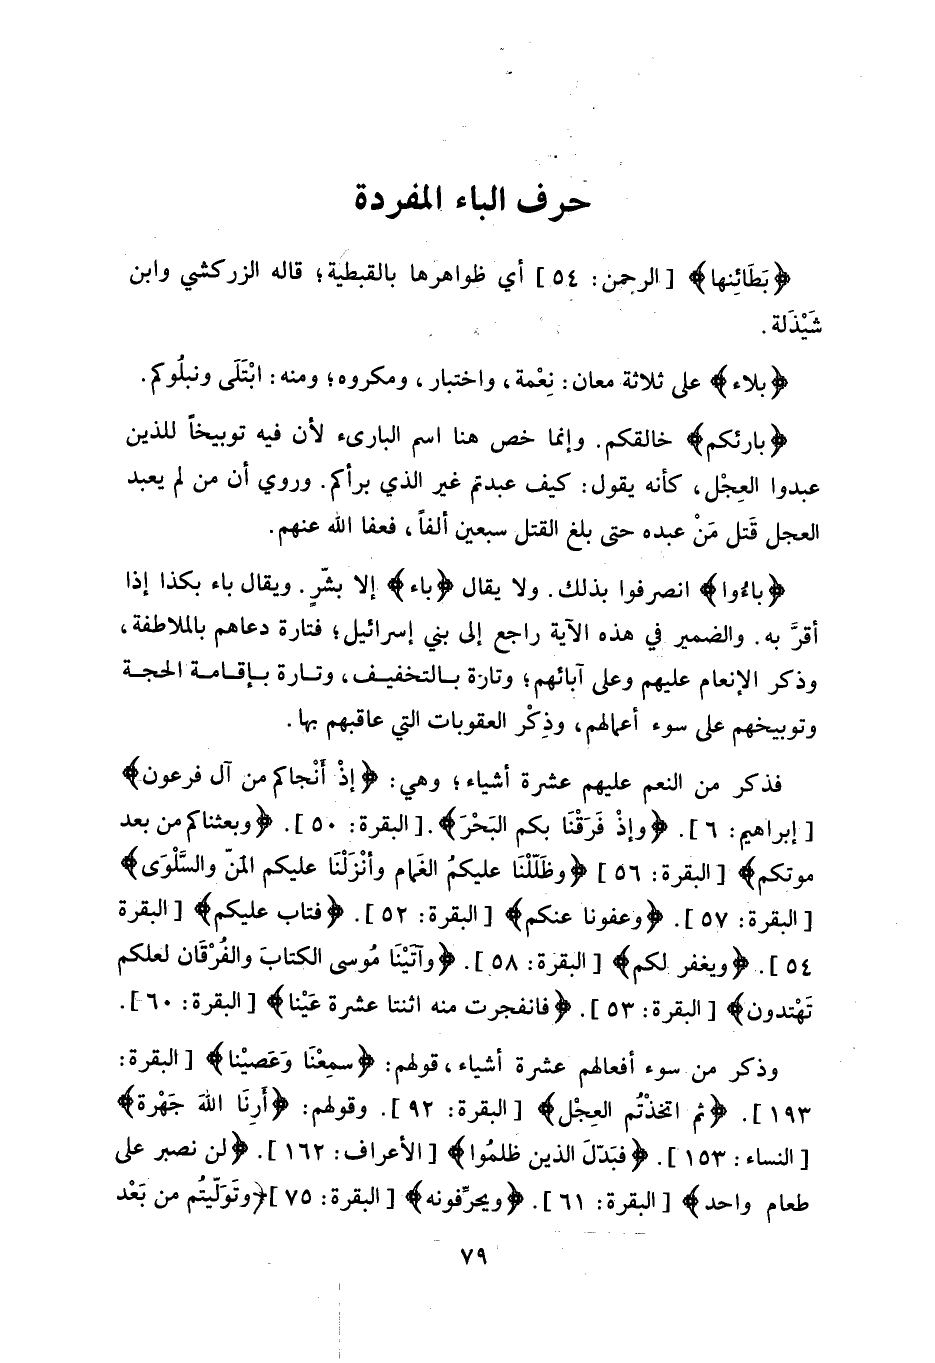 حرف الباء المفردة
﴿بَطَائِنها﴾ [الرحمن: ٥٤] أي ظواهرها بالقبطية؛ قاله الزركشي وابن
شَيْذَلة.
﴿بلاء﴾ على ثلاثة معان: نِعْمة، واختبار، ومكروه؛ ومنه: ابْتَلَى ونبلُوكم.
﴿بارئكم﴾ خالقكم. وإنما خص هنا اسم البارىء لأن فيه توبيخاً للذين
عبدوا العِجْل، كأنه يقول: كيف عبدتم غير الذي برأكم. وروي أن من لم يعبد
العجل قَتل مَنْ عبده حتى بلغ القتل سبعين ألفاً، فعفا الله عنهم.
﴿باءُوا﴾ انصرفوا بذلك. ولا يقال ﴿باء﴾ إلا بشّرٍ. ويقال باء بكذا إذا
أقرَّ به. والضمير في هذه الآية راجع إلى بني إسرائيل؛ فتارة دعاهم بالملاطفة،
وذكر الإنعام عليهم وعلى آبائهم؛ وتارة بالتخفيف، وتارة بإقامة الحجة
وتوبيخهم على سوء أعمالهم، وذِكْر العقوبات التي عاقبهم بها.
فذكر من النعم عليهم عشرة أشياء؛ وهي: ﴿إذْ أَنْجاكم من آل فرعون﴾
[إبراهيم: ٦]. ﴿وإذْ فَرَقْنَا بكم البَحْرَ﴾.[البقرة: ٥٠]. ﴿وبعثناكم من بعد
موتكم﴾ [البقرة: ٥٦] ﴿وظَلّلْنَا عليكمُ الغَمام وأنْزَلْنَا عليكم المَنّ والسَّلْوَى﴾
[البقرة: ٥٧]. ﴿وعفونا عنكم﴾ [البقرة: ٥٢]. ﴿فتاب عليكم﴾ [البقرة
٥٤]. ﴿ويغفر لكم﴾ [البقرة: ٥٨]. ﴿وآتَيْنَا مُوسى الكتابَ والفُرْقَان لعلكم
تَهْتدون﴾ [البقرة: ٥٣]. ﴿فانفجرت منه اثنتا عشرة عَيْنا﴾ [البقرة: ٦٠].
وذكر من سوء أفعالهم عشرة أشياء، قولهم: ﴿سمِعْنَا وَعَصيْنا﴾ [البقرة:
١٩٣]. ﴿ثم اتخذْتُم العِجْل﴾ [البقرة: ٩٢]. وقولهم: ﴿أَرِنَا اللهَ جَهْرة﴾
[النساء: ١٥٣]. ﴿فبَدّلَ الذين ظلمُوا﴾ [الأعراف: ١٦٢]. ﴿لن نصبر على
طعام واحد﴾ [البقرة: ٦١]. ﴿ويحرِّفونه﴾ [البقرة: ٧٥]﴿وتَولّيتُم من بَعْد
٧٩